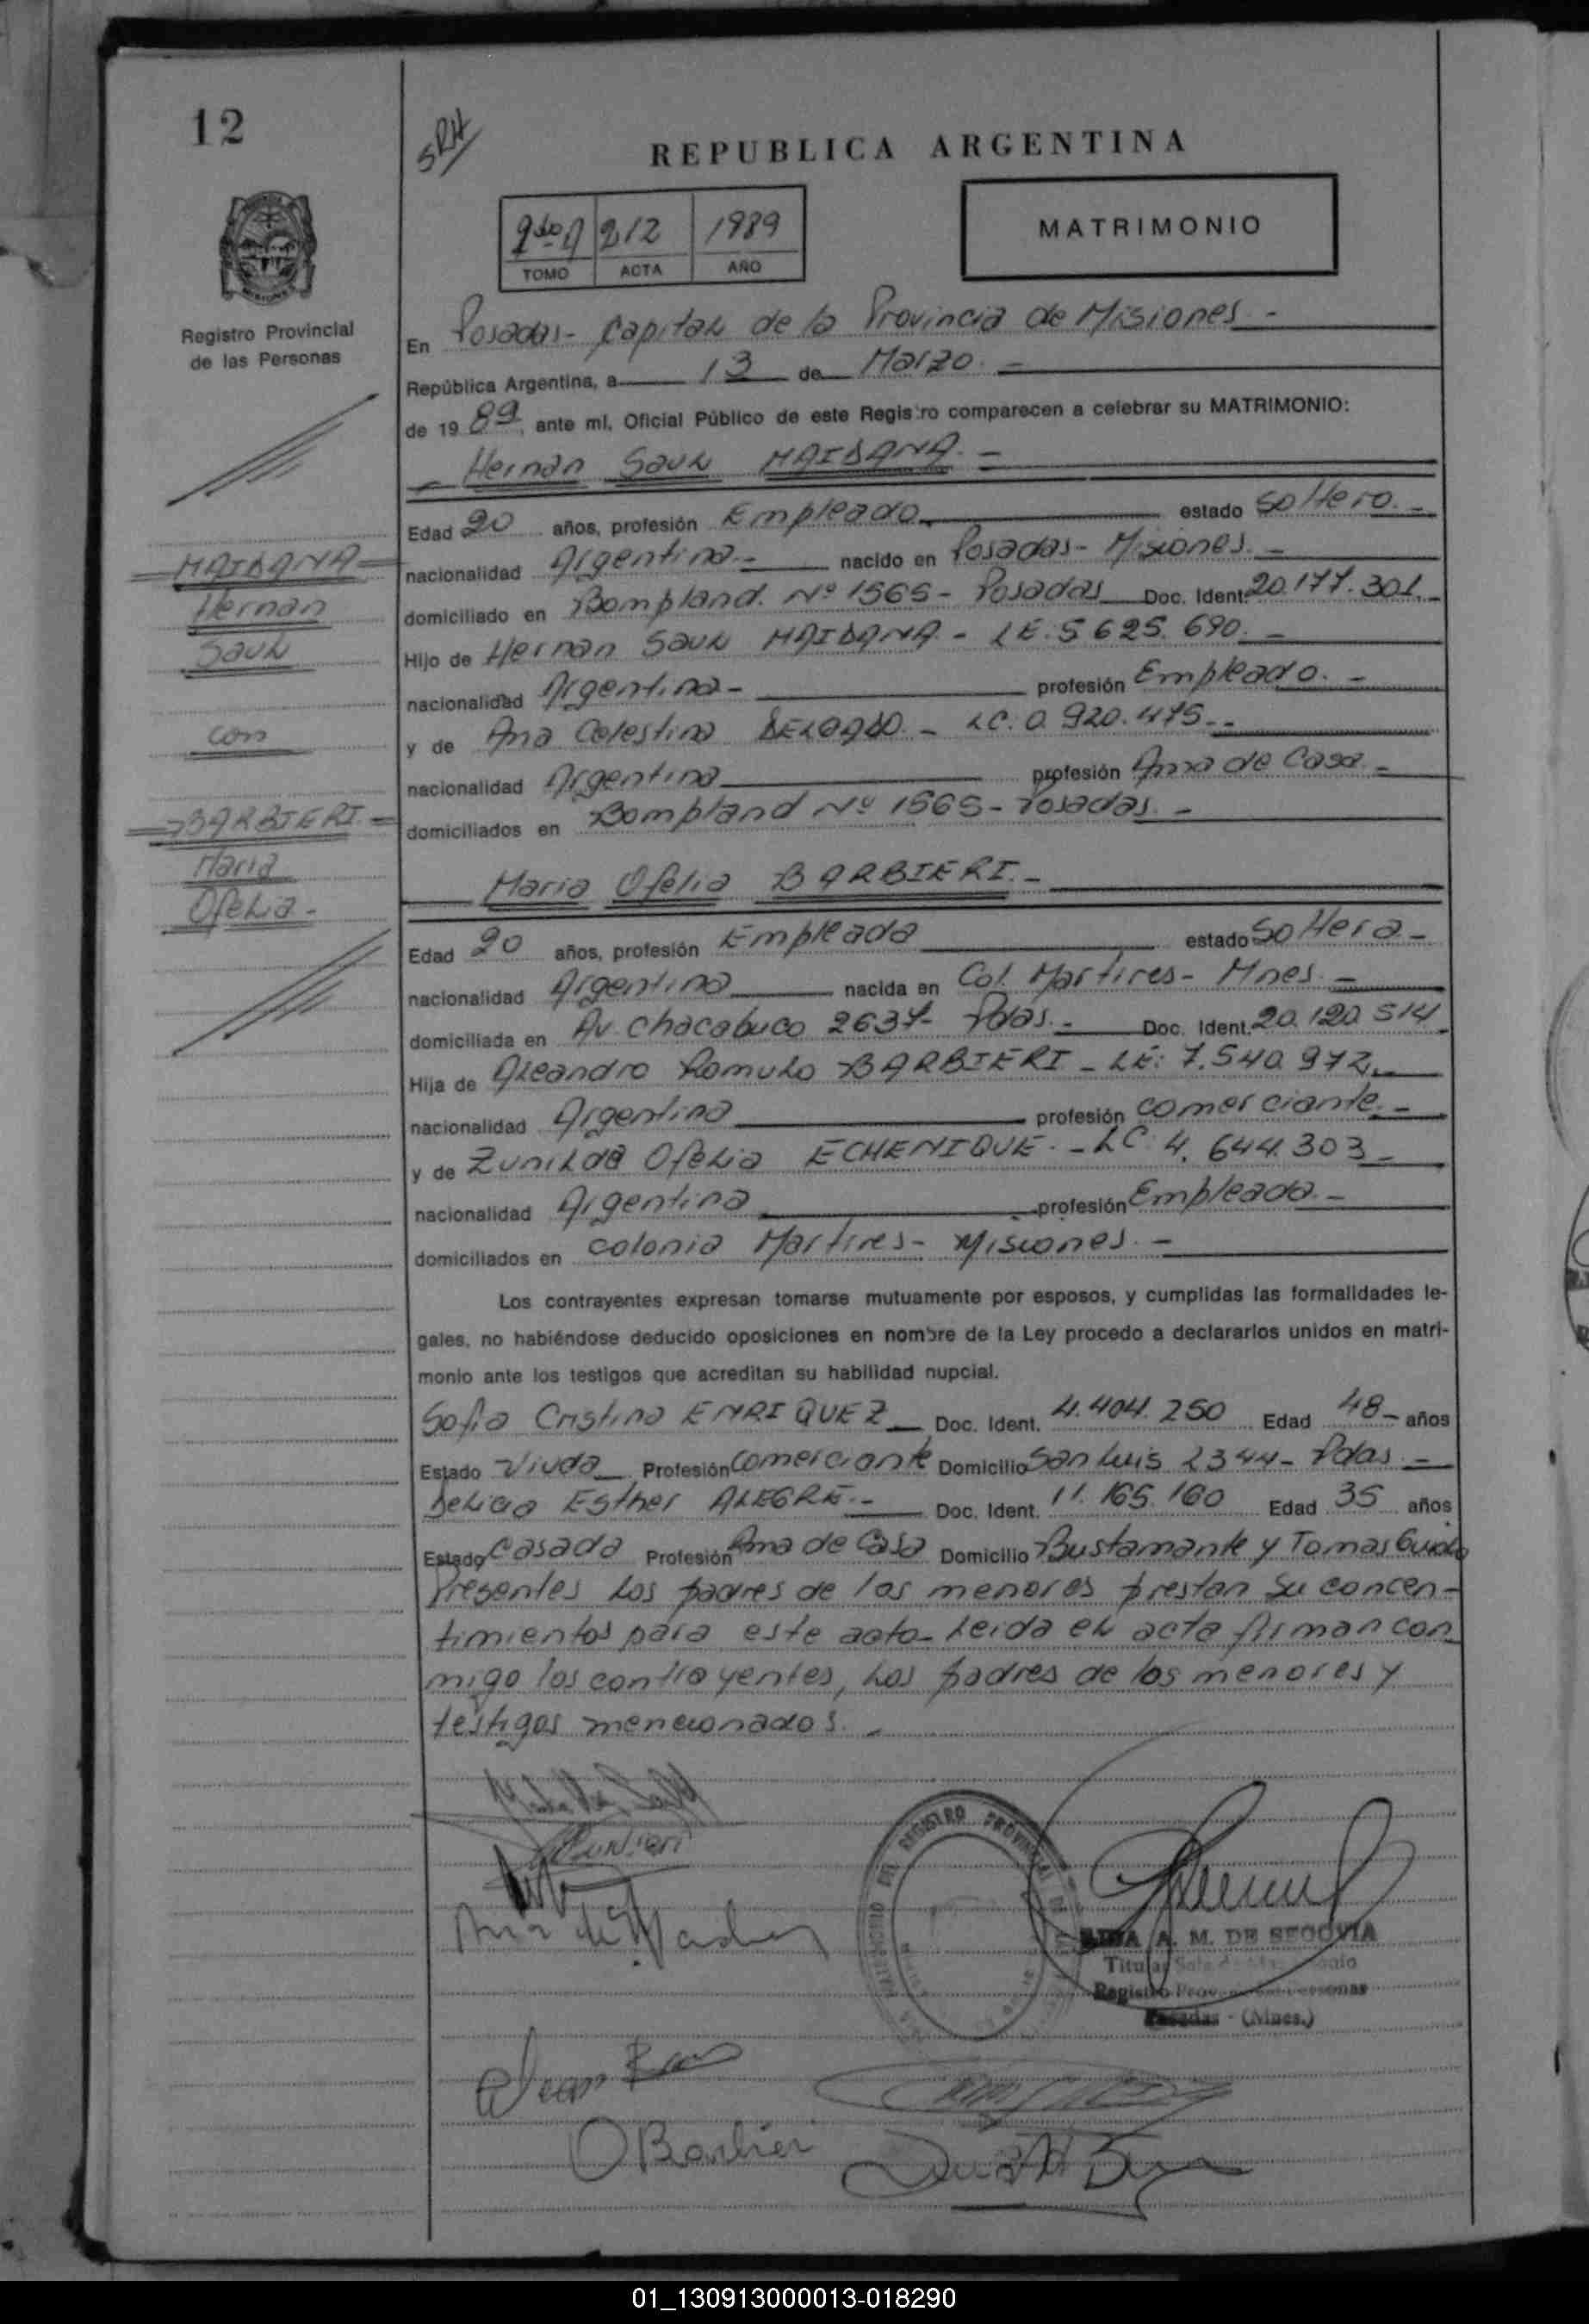 12
SRH
REPUBLICA ARGENTINA
212 1989
MATRIMONIO
TOMO ACTA AÑO
Registro Provincial
de las Personas
En Posadas- Capital de la Provincia de Misiones.-
República Argentina, a 13 de Marzo.-
de 19 89, ante mí, Oficial Público de este Registro comparecen a celebrar su MATRIMONIO:
Hernan Saul MAIDANA.-
Edad 20 años, profesión Empleado. estado Soltero.-
MAIDANA
Hernan
Saul
con
BARBIERI.
Maria
Ofelia-
nacionalidad Argentina.- nacido en Posadas- Misiones.-
domiciliado en Bompland. Nº 1565- Posadas Doc. Ident. 20.177.301.-
Hijo de Hernan Saul MAIDANA.- LE: 5 625. 690.-
nacionalidad Argentina- profesión Empleado.-
y de Ana Celestina DELGADO.- LC: 0.920.475.-
nacionalidad Argentina profesión Ama de Casa.-
domiciliados en Bompland Nº 1565- Posadas.-
Maria Ofelia BARBIERI.-
Edad 20 años, profesión Empleada estado Soltera-
nacionalidad Argentina nacida en Col. Martires- Mnes.-
domiciliada en Av. Chacabuco 2637- Pdas.- Doc. Ident. 20.120.514
Hija de Aleandro Romulo BARBIERI - LE: 7.540.972.
nacionalidad Argentina profesión comerciante.-
y de Zunilda Ofelia ECHENIQUE.- LC: 4.644.303-
nacionalidad Argentina profesión Empleada.-
domiciliados en colonia Martires- Misiones.-
Los contrayentes expresan tomarse mutuamente por esposos, y cumplidas las formalidades le-
gales, no habiéndose deducido oposiciones en nombre de la Ley procedo a declararlos unidos en matri-
monio ante los testigos que acreditan su habilidad nupcial.
Sofia Cristina ENRIQUEZ Doc. Ident. 4.404.250 Edad 48- años
Estado Viuda Profesión Comerciante Domicilio San Luis 2344- Pdas.-
Delicia Esther ALEGRE.- Doc. Ident. 11.165.160 Edad 35 años
Estado Casada Profesión Ama de Casa Domicilio Bustamante y Tomas Guido
Presentes los padres de los menores prestan su concen-
timientos para este acto- Leida el acta firman con
migo los contrayentes, los padres de los menores y
testigos mencionados.-
REGISTRO PROVINCIAL
A. M. DE SEGOVIA
Titular
Registro
Posadas - (Mnes.)
O Barbieri
01_130913000013-018290